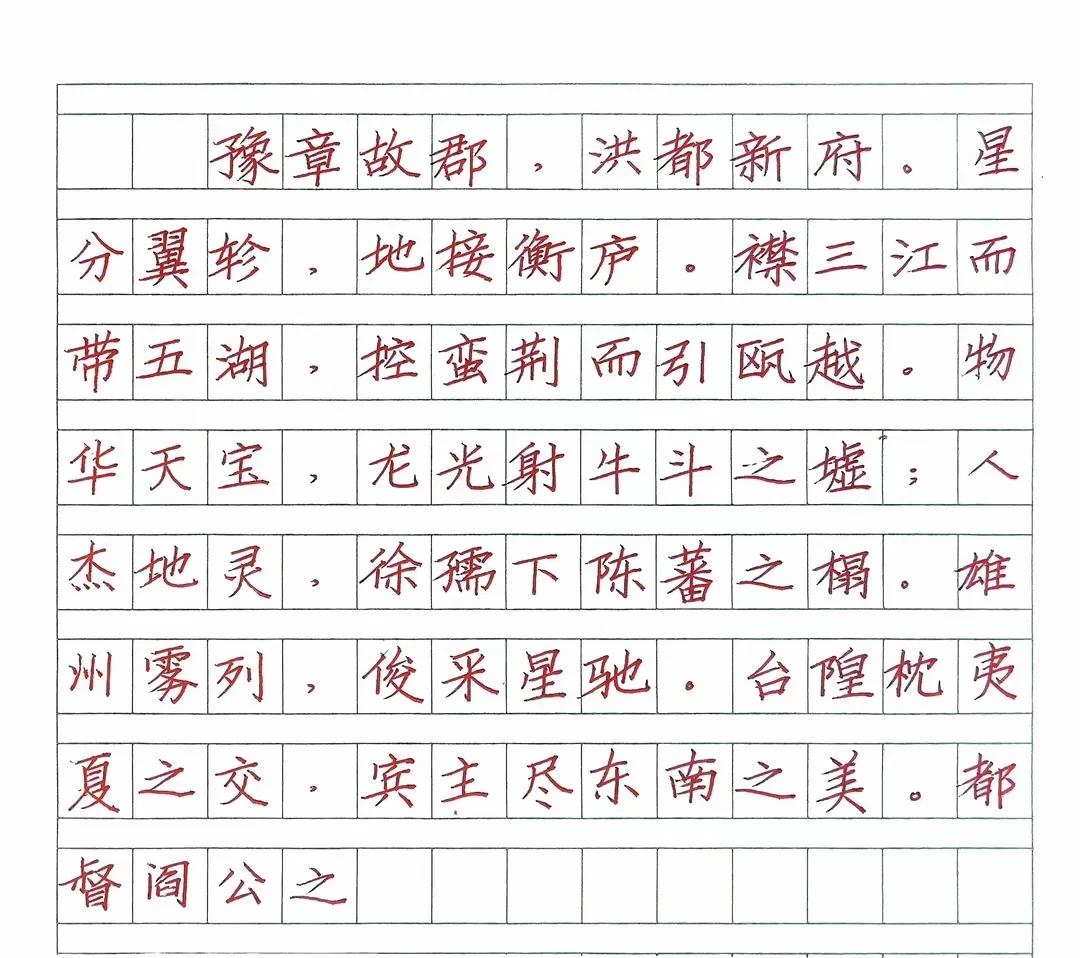 豫章故郡，洪都新府。星
分翼轸，地接衡庐。襟三江而
带五湖，控蛮荆而引瓯越。物
华天宝，龙光射牛斗之墟；人
杰地灵，徐孺下陈蕃之榻。雄
州雾列，俊采星驰。台隍枕夷
夏之交，宾主尽东南之美。都
督阎公之